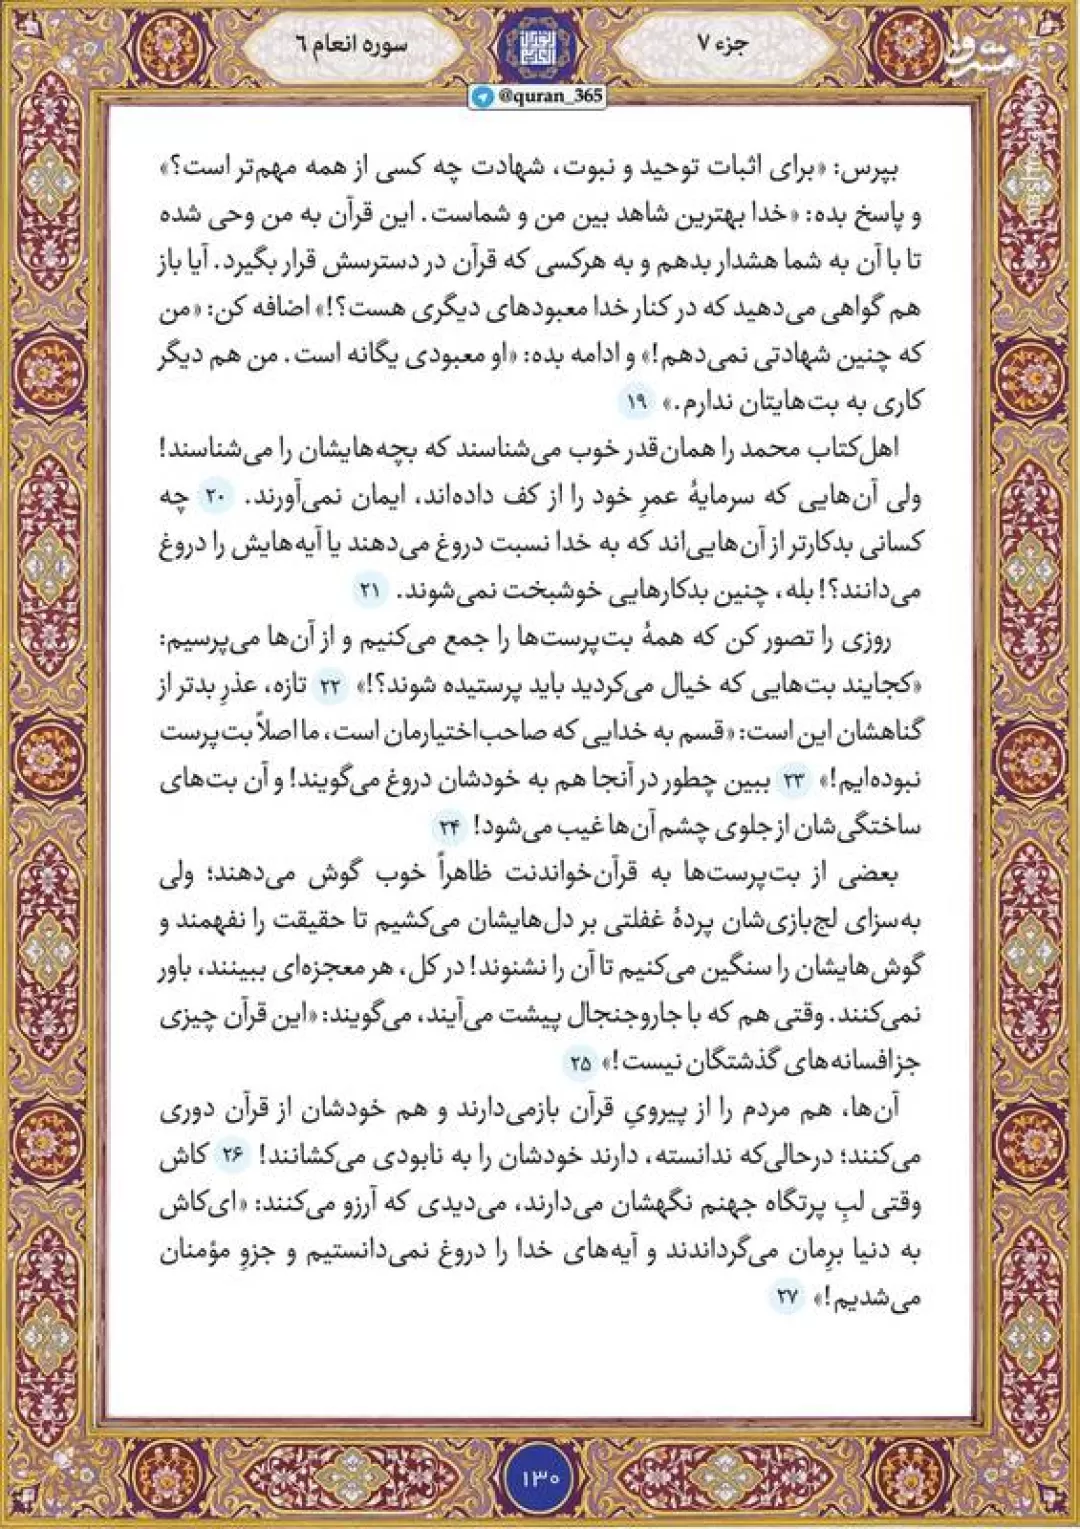 جزء ۷
سوره انعام ۶
مشرق
mashreghnews.ir
@quran_365
بپرس: «برای اثبات توحید و نبوت، شهادت چه کسی از همه مهم‌تر است؟»
و پاسخ بده: «خدا بهترین شاهد بین من و شماست. این قرآن به من وحی شده
تا با آن به شما هشدار بدهم و به هرکسی که قرآن در دسترسش قرار بگیرد. آیا باز
هم گواهی می‌دهید که در کنار خدا معبودهای دیگری هست؟!» اضافه کن: «من
که چنین شهادتی نمی‌دهم!» و ادامه بده: «او معبودی یگانه است. من هم دیگر
کاری به بت‌هایتان ندارم.» ۱۹
اهل‌کتاب محمد را همان‌قدر خوب می‌شناسند که بچه‌هایشان را می‌شناسند!
ولی آن‌هایی که سرمایهٔ عمرِ خود را از کف داده‌اند، ایمان نمی‌آورند. ۲۰ چه
کسانی بدکارتر از آن‌هایی‌اند که به خدا نسبت دروغ می‌دهند یا آیه‌هایش را دروغ
می‌دانند؟! بله، چنین بدکارهایی خوشبخت نمی‌شوند. ۲۱
روزی را تصور کن که همهٔ بت‌پرست‌ها را جمع می‌کنیم و از آن‌ها می‌پرسیم:
«کجایند بت‌هایی که خیال می‌کردید باید پرستیده شوند؟!» ۲۲ تازه، عذرِ بدتر از
گناهشان این است: «قسم به خدایی که صاحب‌اختیارمان است، ما اصلاً بت‌پرست
نبوده‌ایم!» ۲۳ ببین چطور در آنجا هم به خودشان دروغ می‌گویند! و آن بت‌های
ساختگی‌شان از جلوی چشم آن‌ها غیب می‌شود! ۲۴
بعضی از بت‌پرست‌ها به قرآن‌خواندنت ظاهراً خوب گوش می‌دهند؛ ولی
به‌سزای لج‌بازی‌شان پردهٔ غفلتی بر دل‌هایشان می‌کشیم تا حقیقت را نفهمند و
گوش‌هایشان را سنگین می‌کنیم تا آن را نشنوند! در کل، هر معجزه‌ای ببینند، باور
نمی‌کنند. وقتی هم که با جاروجنجال پیشت می‌آیند، می‌گویند: «این قرآن چیزی
جز افسانه‌های گذشتگان نیست!» ۲۵
آن‌ها، هم مردم را از پیرویِ قرآن بازمی‌دارند و هم خودشان از قرآن دوری
می‌کنند؛ درحالی‌که ندانسته، دارند خودشان را به نابودی می‌کشانند! ۲۶ کاش
وقتی لبِ پرتگاه جهنم نگهشان می‌دارند، می‌دیدی که آرزو می‌کنند: «ای‌کاش
به دنیا برِمان می‌گرداندند و آیه‌های خدا را دروغ نمی‌دانستیم و جزوِ مؤمنان
می‌شدیم!» ۲۷
۱۳۰